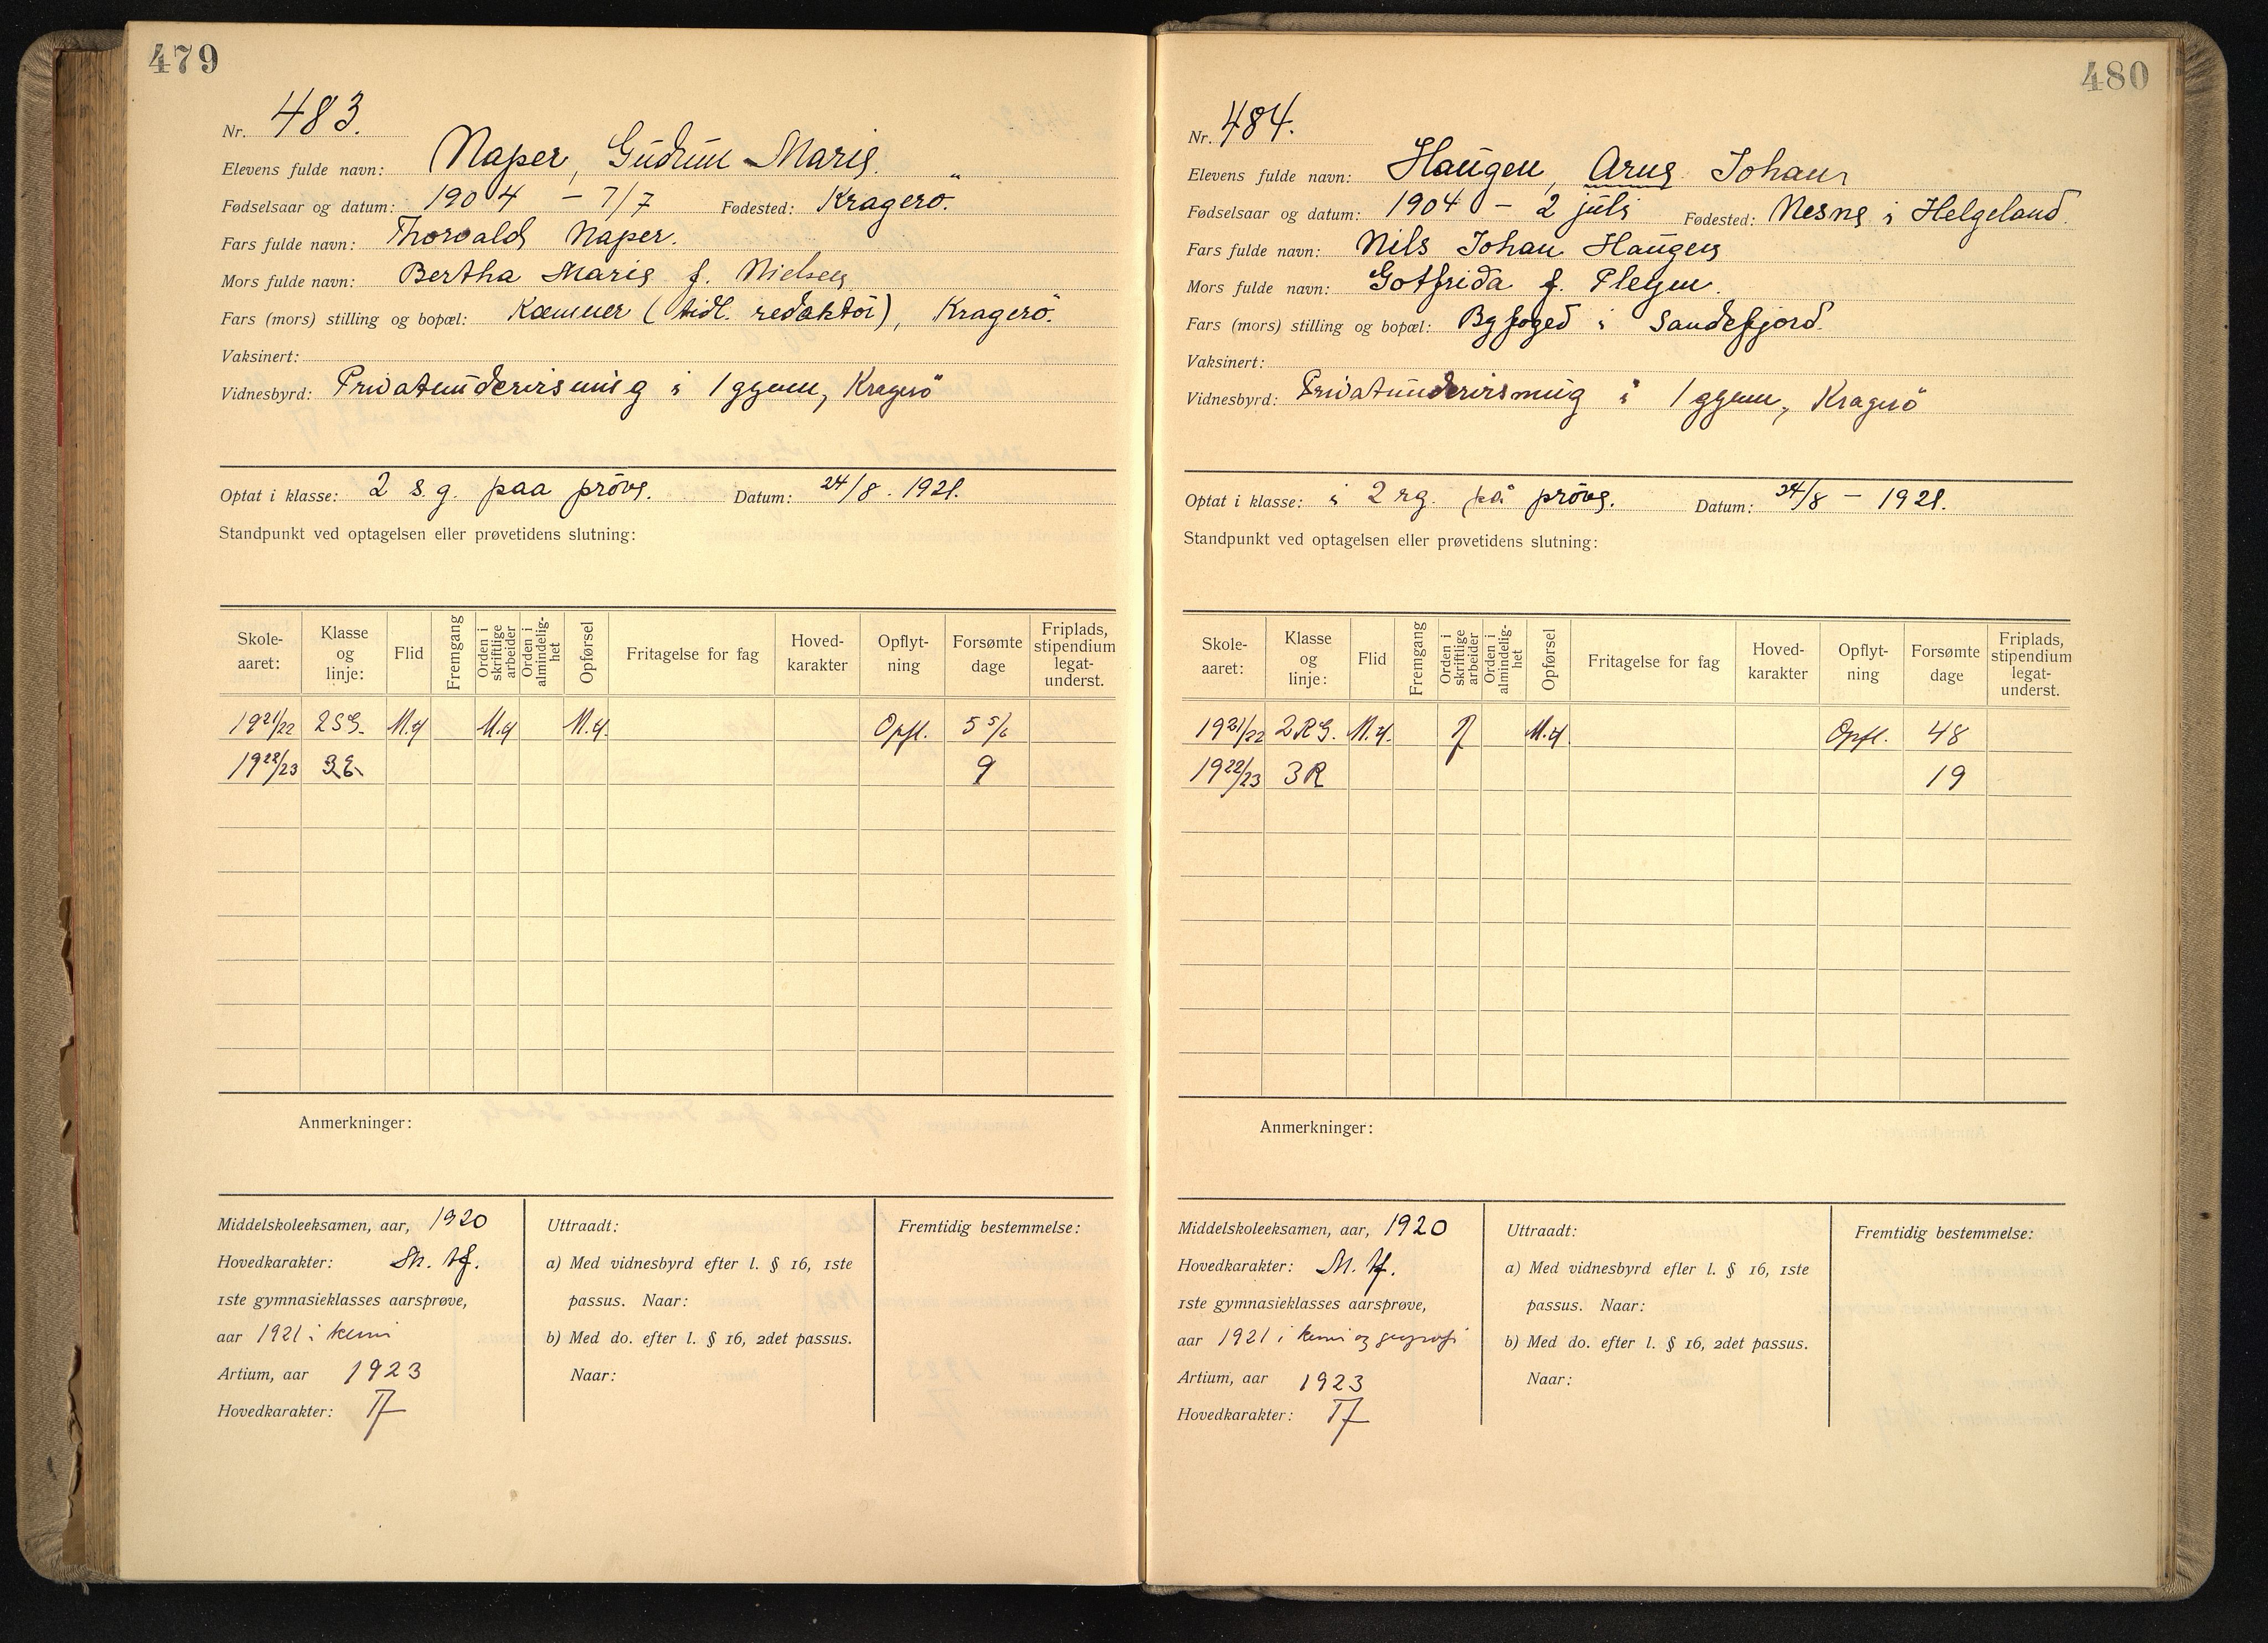 479
Nr. 483.
Elevens fulde navn: Naper, Gudrun Marie.
Fødselsaar og datum: 1904 – 7/7 Fødested: Kragerö.
Fars fulde navn: Thorvald Naper.
Mors fulde navn: Bertha Marie f. Nielsen
Fars (mors) stilling og bopæl: Kæmner (tidl. redaktör), Kragerö.
Vaksinert:
Vidnesbyrd: Privatundervisning i 1 gymn, Kragerö
Optat i klasse: 2 s.g. paa pröve. Datum: 24/8. 1921.
Standpunkt ved optagelsen eller prøvetidens slutning:
Skole-aaret: Klasse og linje: Flid Fremgang Orden i skriftlige arbeider Orden i almindelig-het Opførsel Fritagelse for fag Hoved-karakter Opflyt-ning Forsømte dage Friplads, stipendium legat-underst.
1921/22 2SG. M.g M.g M.g. Opfl. 5 5/6
1922/23 3E. 9
Anmerkninger:
Middelskoleeksamen, aar, 1920
Hovedkarakter: M. tf.
1ste gymnasieklasses aarsprøve,
aar 1921 i kemi
Artium, aar 1923
Hovedkarakter: T
Uttraadt:
a) Med vidnesbyrd efter l. § 16, 1ste
passus. Naar:
b) Med do. efter l. § 16, 2det passus.
Naar:
Fremtidig bestemmelse:
480
Nr. 484.
Elevens fulde navn: Haugen, Arne Johan
Fødselsaar og datum: 1904 – 2 juli Fødested: Nesne i Helgeland.
Fars fulde navn: Nils Johan Haugen
Mors fulde navn: Gotfrida f. Pleym.
Fars (mors) stilling og bopæl: Byfoged i Sandefjord.
Vaksinert:
Vidnesbyrd: Privatundervisning i 1 gymn, Kragerö
Optat i klasse: i 2 rg. på pröve. Datum: 24/8 – 1921.
Standpunkt ved optagelsen eller prøvetidens slutning:
Skole-aaret: Klasse og linje: Flid Fremgang Orden i skriftlige arbeider Orden i almindelig-het Opførsel Fritagelse for fag Hoved-karakter Opflyt-ning Forsømte dage Friplads, stipendium legat-underst.
1921/22 2RG. M.g. T M.g. Opfl. 48
1922/23 3R 19
Anmerkninger:
Middelskoleeksamen, aar, 1920
Hovedkarakter: M. tf.
1ste gymnasieklasses aarsprøve,
aar 1921 i kemi og geografi
Artium, aar 1923
Hovedkarakter: T
Uttraadt:
a) Med vidnesbyrd efter l. § 16, 1ste
passus. Naar:
b) Med do. efter l. § 16, 2det passus.
Naar:
Fremtidig bestemmelse: